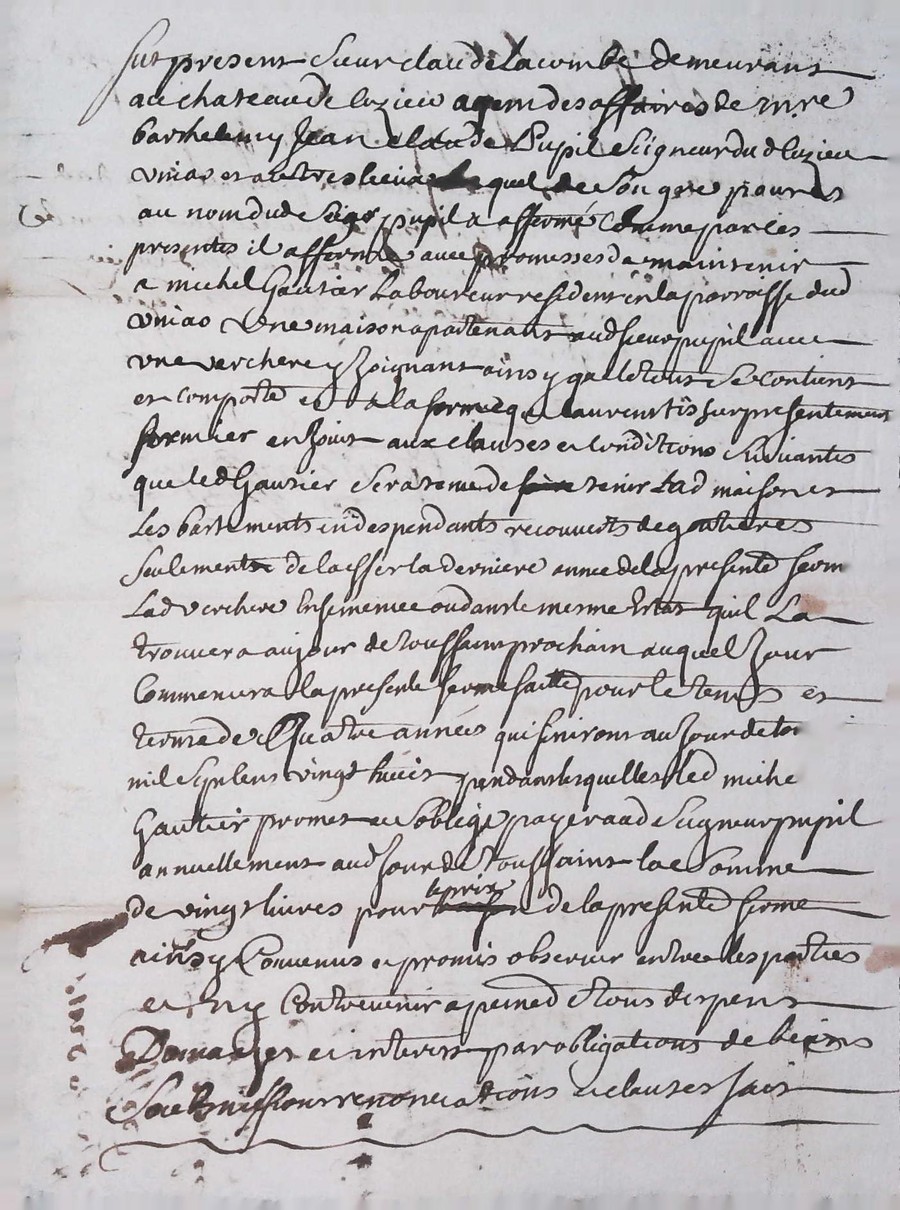 fut present Sieur claude Lacombe demeurant
au chateau de Cuzieu agent des affaires de m.re
barthelemy Jean claude Pupil Seigneur dud Cuzieu
uniao et autres lieux lequel de Son gre pour et
au nom dud Seigr pupil a affermé Comme par ces
presentes il afferme avec promesses de maintenir
a michel Gautier Laboureur resident en la parroisse dud
uniao Une maison apartenant aud sieur pupil avec
une verchere y Joignant ainsy que le tout Se contient
et comporte et a la forme que laurent presentement
fermier en Jouit aux clauses et Conditions Suivantes
que led Gautier Sera tenu de tenir Lad maison et
Les bastiments endespendants recouverts de goutieres
Seulement de laisser la derniere année de la presente ferm
Lad verchere Ensemencee ou dans le mesme Estat quil La
trouvera au jour de toussaint prochain auquel Jour
Commencera la presente ferme faitte pour le temps et
terme de Quatre années qui finiront au Jour de tou
mil Sept cens vingt huit pendant lesquelles led miche
Gautier promet et Soblige payer aud Seigneur pupil
annuellement aud Jour de Toussaint la Somme
de vingt livres pour le prix de la presente ferme
ainsy Convenus et promis observer entre les parties
et ny Contrevenir a peine de tous despens
Domages et interest par obligations de biens
Soubmissions renonciations et clauses fait